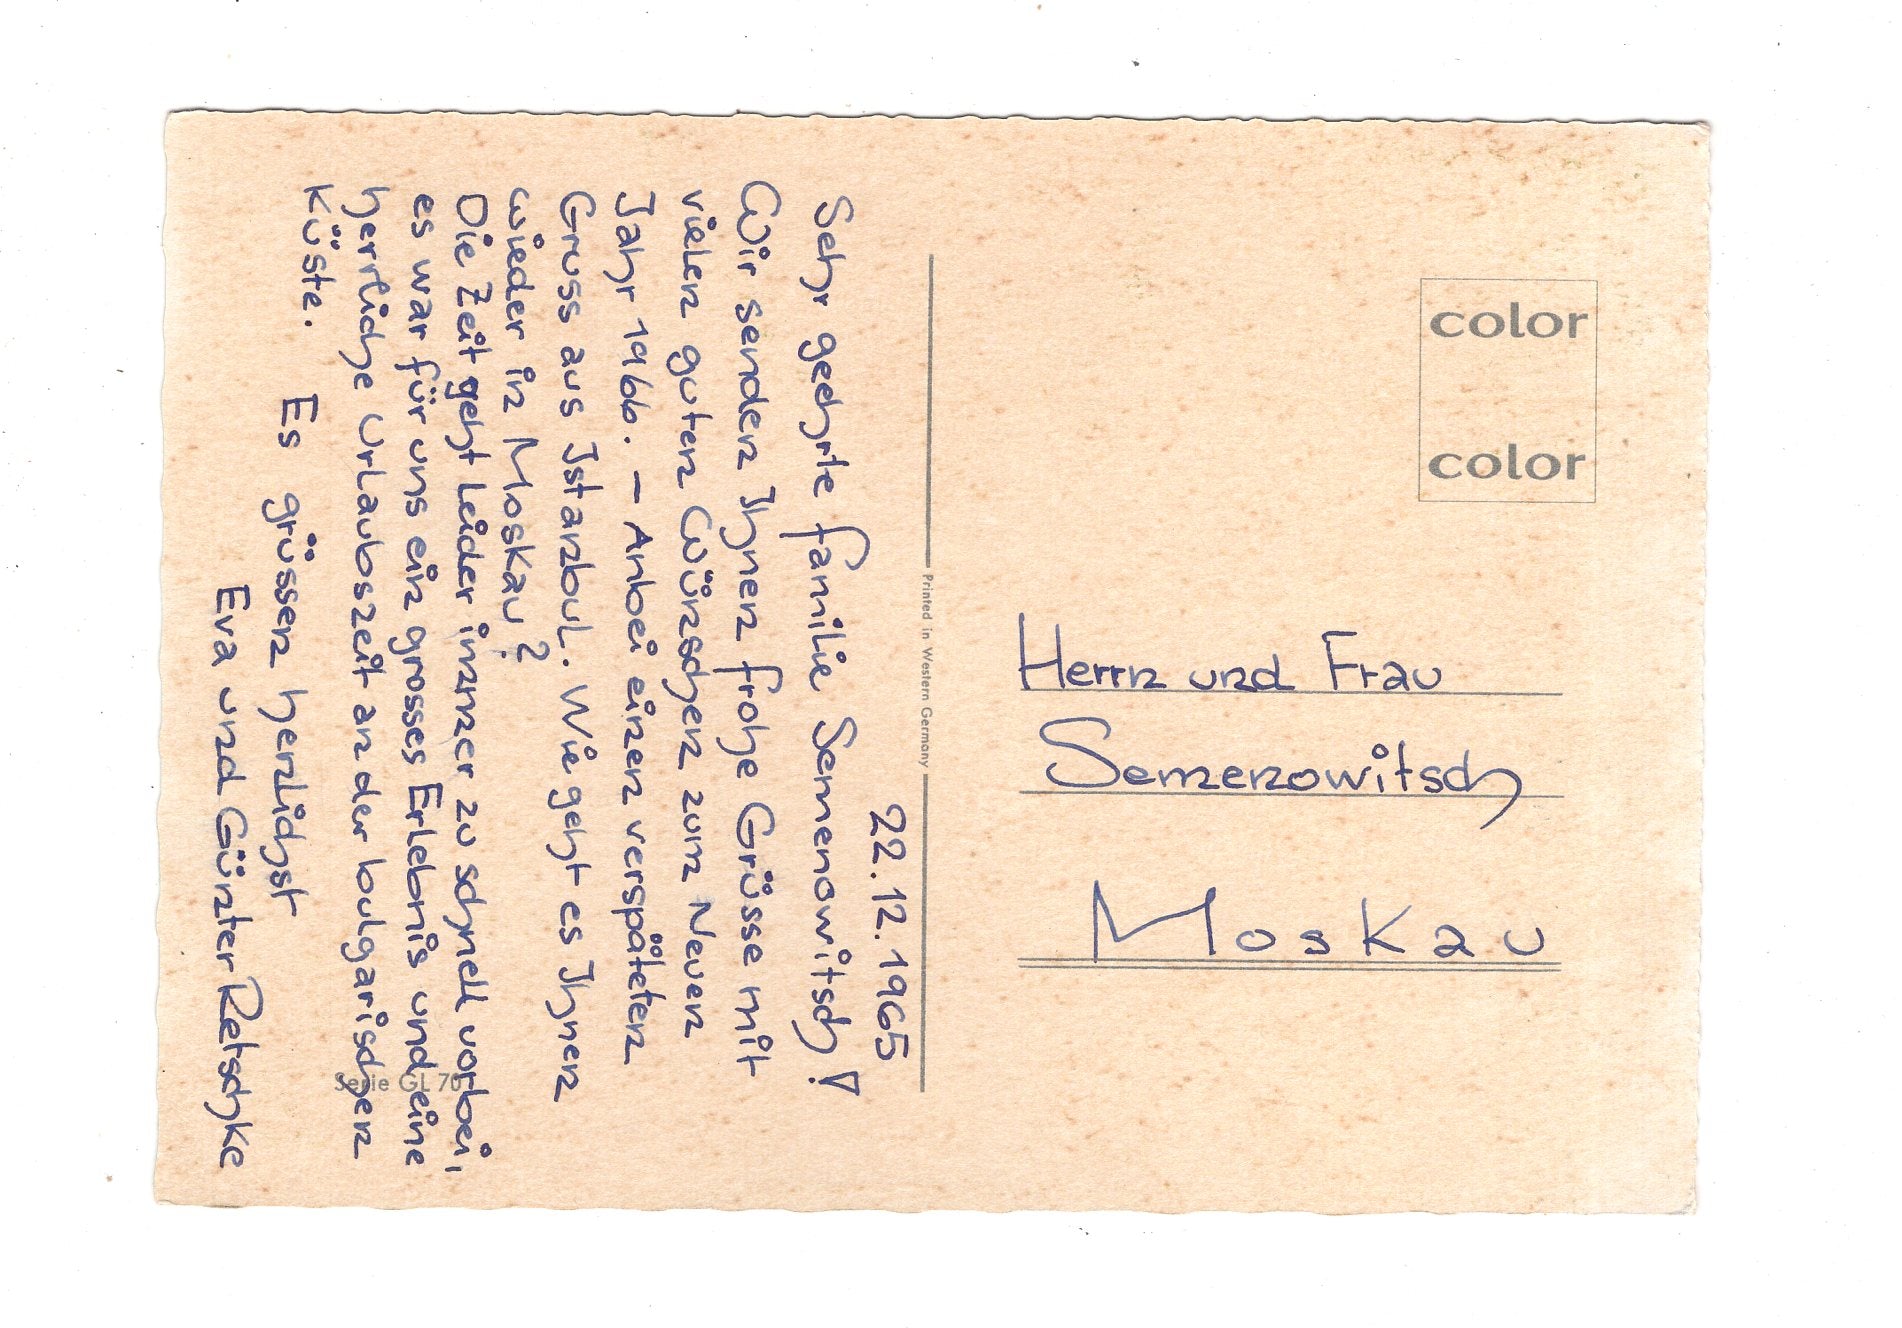 22.12.1965
Sehr geehrte Familie Semenowitsch!
Wir senden Ihnen frohe Grüsse mit
vielen guten Wünschen zum Neuen
Jahr 1966. – Anbei einen verspäteten
Gruss aus Istanbul. Wie geht es Ihnen
wieder in Moskau?
Die Zeit geht leider immer zu schnell vorbei,
es war für uns ein grosses Erlebnis und eine
herrliche Urlaubszeit an der bulgarischen
Küste.
Es grüssen herzlichst
Eva und Günter Retschke
Serie GL 70
Printed in Western Germany
color
color
Herrn und Frau
Semenowitsch
Moskau